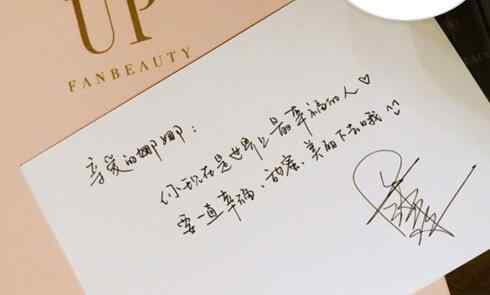 UP
FANBEAUTY
亲爱的娜娜：
你现在是世界上最幸福的人♡
要一直幸福、甜蜜、美丽下去哦